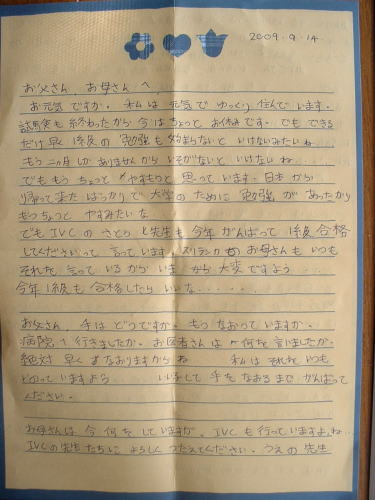 2009.9.14
お父さん、お母さんへ、
お元気ですか。私は元気でゆっくり住んでいます。
試験も終わったから今はちょっとお休みです。でもできる
だけ早く1級の勉強も始まらないといけないみたいね...
もう二ヶ月しかありませんからいそがないといけないね...
でももうちょっとやすもうと思っています。日本から
帰って来たばっかりで大学のために勉強があったから
もうちょっとやすみたいな
でもIVCのさとう先生も今年がんばって1級合格
してくださいって言っています。スリランカのお母さんもいつも
それを言っているからいまから大変ですよ...
今年1級も合格したらいいな......
お父さん、手はどうですか。もうなおっていますか。
病院へ行きましたか。お医者さんは何を言いましたか。
絶対早くなおりますからね 私はそれをいつも
っていますよう... して手をなおるまでがんばって
ください。
お母さんは今何をしていますか。IVCも行っていますよね...
IVCの先生たちによろしくつたえてください。うえの先生